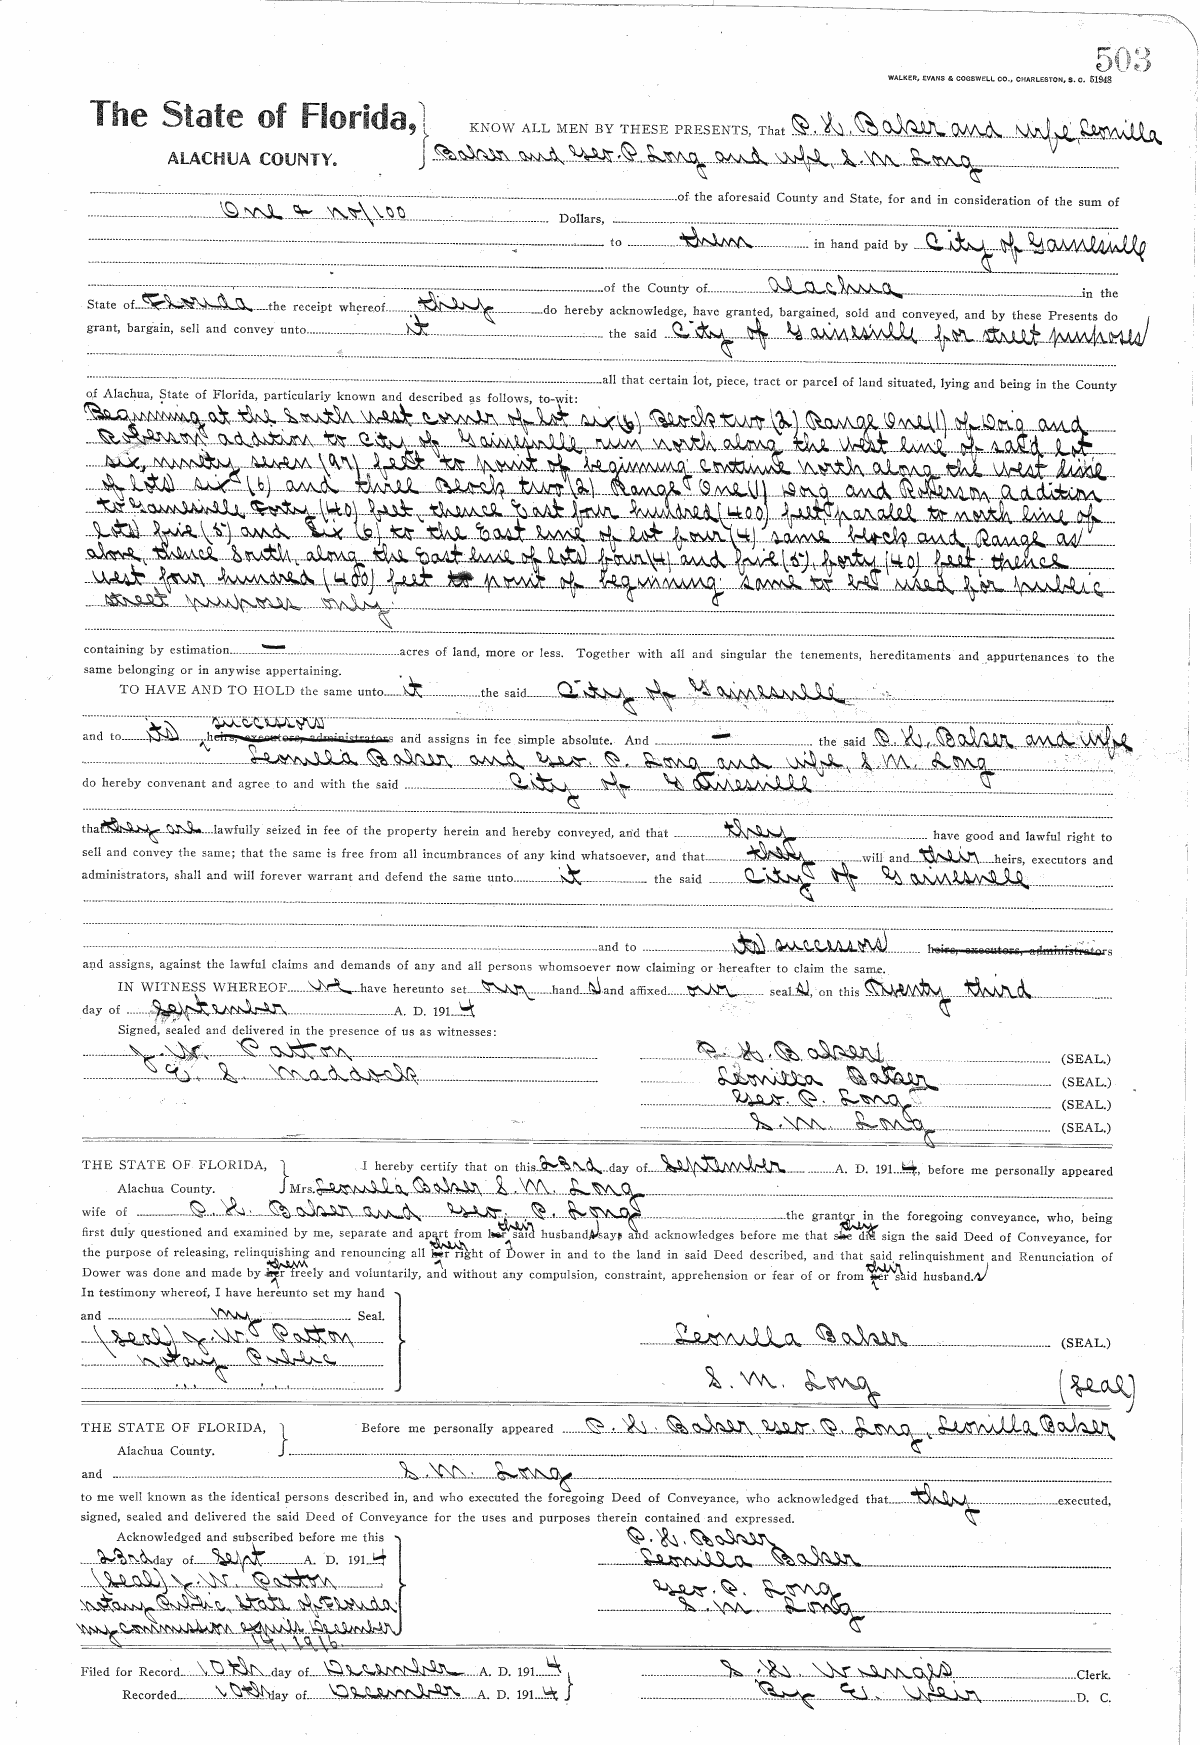 503
WALKER, EVANS & COGSWELL CO., CHARLESTON, S. C. 51948
The State of Florida,
ALACHUA COUNTY.
KNOW ALL MEN BY THESE PRESENTS, That P. H. Baker and wife, Leonilla
Baker and Geo. P. Long and wife, S. M. Long
of the aforesaid County and State, for and in consideration of the sum of
One & no/100 Dollars,
to them in hand paid by City of Gainesville
of the County of Alachua in the
State of Florida the receipt whereof they do hereby acknowledge, have granted, bargained, sold and conveyed, and by these Presents do
grant, bargain, sell and convey unto it the said City of Gainesville for street purposes
all that certain lot, piece, tract or parcel of land situated, lying and being in the County
of Alachua, State of Florida, particularly known and described as follows, to-wit:
Beginning at the South west corner of lot six (6) Block two (2) Range One (1) of Doig and
Roberson addition to City of Gainesville, run north along the West line of said lot
six, ninety seven (97) feet to point of beginning continue north along the West line
of lots six (6) and three Block two (2) Range One (1) Doig and Roberson addition
to Gainesville Forty (40) feet, thence East four hundred (400) feet paralel to north line of
lots five (5) and Six (6) to the East line of lot four (4) same block and Range as
above, thence South, along the East line of lots four (4) and five (5), forty (40) feet thence
West four hundred (400) feet to point of beginning: same to be used for public
street purposes only.
containing by estimation — acres of land, more or less. Together with all and singular the tenements, hereditaments and appurtenances to the
same belonging or in anywise appertaining.
TO HAVE AND TO HOLD the same unto it the said City of Gainesville
successors
and to its heirs, executors, administrators and assigns in fee simple absolute. And — the said P. H. Baker and wife
Leonilla Baker and Geo. P. Long and wife, S. M. Long
do hereby convenant and agree to and with the said City of Gainesville
that they are lawfully seized in fee of the property herein and hereby conveyed, and that they have good and lawful right to
sell and convey the same; that the same is free from all incumbrances of any kind whatsoever, and that they will and their heirs, executors and
administrators, shall and will forever warrant and defend the same unto it the said City of Gainesville
and to its successors heirs, executors, administrators
and assigns, against the lawful claims and demands of any and all persons whomsoever now claiming or hereafter to claim the same.
IN WITNESS WHEREOF we have hereunto set our hand s and affixed our seal s, on this Twenty third
day of September A. D. 191 4
Signed, sealed and delivered in the presence of us as witnesses:
J. W. Patton P. H. Baker (SEAL.)
E. S. Maddock Leonilla Baker (SEAL.)
Geo. P. Long (SEAL.)
S. M. Long (SEAL.)
THE STATE OF FLORIDA, I hereby certify that on this 23rd day of September A. D. 191 4, before me personally appeared
Alachua County. Mrs. Leonilla Baker S. M. Long
wife of P. H. Baker and Geo. P. Long the grantor in the foregoing conveyance, who, being
first duly questioned and examined by me, separate and apart from her their said husband s says and acknowledges before me that she they did sign the said Deed of Conveyance, for
the purpose of releasing, relinquishing and renouncing all her their right of Dower in and to the land in said Deed described, and that said relinquishment and Renunciation of
Dower was done and made by her them freely and voluntarily, and without any compulsion, constraint, apprehension or fear of or from her their said husband. s
In testimony whereof, I have hereunto set my hand
and my Seal.
(Seal) J. W. Patton Leonilla Baker (SEAL.)
Notary Public
S. M. Long (Seal)
THE STATE OF FLORIDA, Before me personally appeared P. H. Baker, Geo. P. Long, Leonilla Baker
Alachua County.
and S. M. Long
to me well known as the identical persons described in, and who executed the foregoing Deed of Conveyance, who acknowledged that they executed,
signed, sealed and delivered the said Deed of Conveyance for the uses and purposes therein contained and expressed.
Acknowledged and subscribed before me this P. H. Baker
23rd day of Sept A. D. 191 4 Leonilla Baker
(Seal) J. W. Patton Geo. P. Long
Notary Public, State of Florida S. M. Long
my commission expires December
17, 1916
Filed for Record 10th day of December A. D. 191 4 S. H. Wienges Clerk.
Recorded 10th day of December A. D. 191 4 By E. Weir D. C.